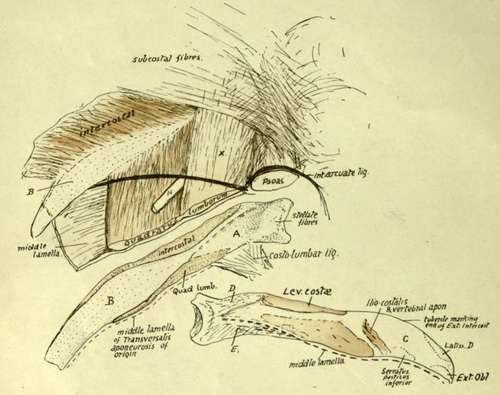 subcostal fibres.
intercostal
B
X
N
Psoas
interarcuate lig.
quadratus lumborum
middle
lamella
intercostal
A
stellate
fibres
costo-lumbar lig.
Quad lumb.
B
middle lamella
of Transversalis
aponeurosis of
origin
D
Lev. costæ
Ilio-costalis
& vertebral apon
tubercle marking
end of Ext. Intercost
C
Latiss. D
E.
middle lamella
Serratus
posticus
inferior
Ext. Obl